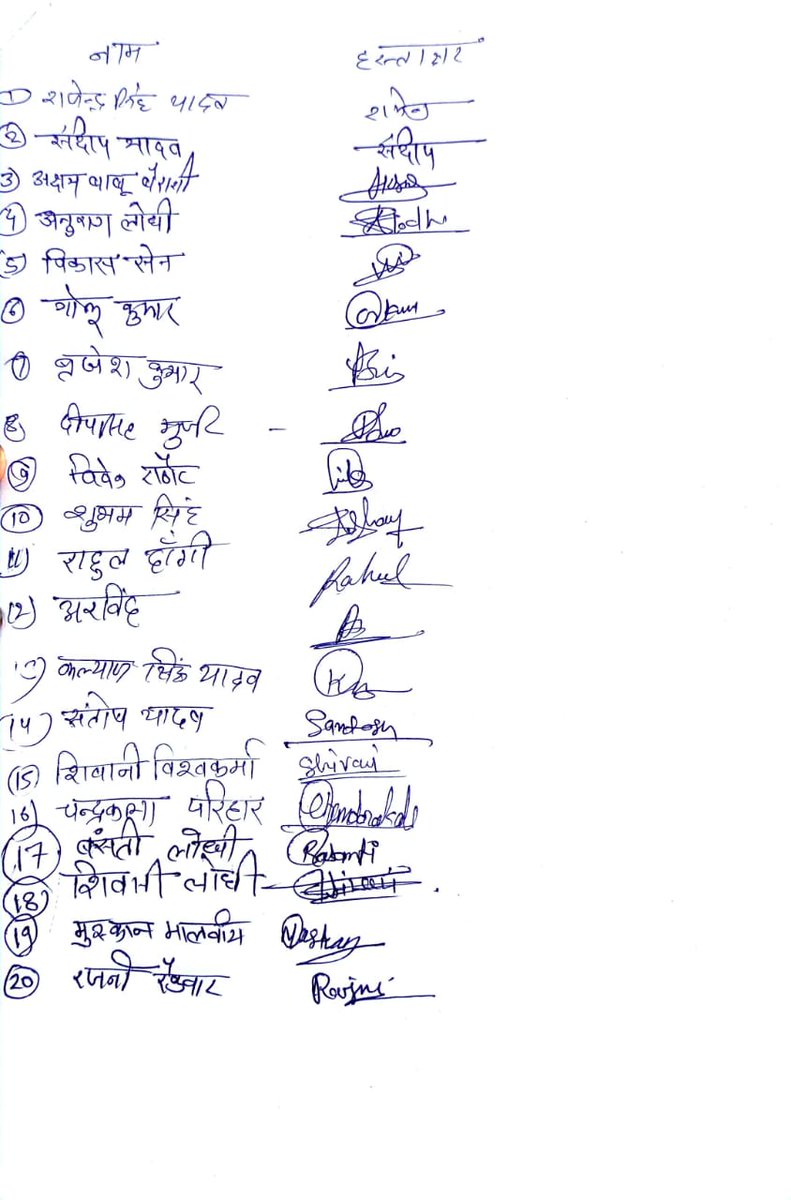 नाम हस्ताक्षर
① राजेन्द्र सिंह यादव राजेन्द्र
② संदीप यादव संदीप
3) अक्षय बाबू बैरागी
(4) अनुराग लोधी Lodhi
(5) विकास सेन
⑥ गोलू कुमार
⑦ बृजेश कुमार Bri
8) दीपसिंह गुर्जर -
⑨ विवेक
⑩ शुभम सिंह
11) राहुल दाँगी Rahul
(12) अरविंद
13) कल्याण सिंह यादव
(14) संतोष यादव Santosh
(15) शिवानी विश्वकर्मा Shivani
16) चन्द्रकला परिहार Chandrakala
(17) बसंती लोधी Basanti
(18) शिवानी लोधी - Shivani
(19) मुस्कान मालवीय Muskan
(20) रजनी रैकवार Rajni